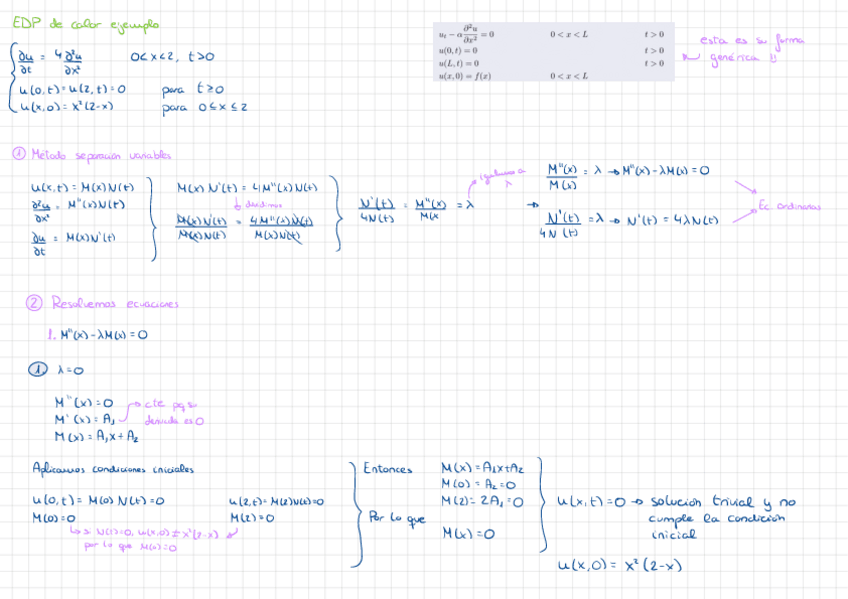 EDP de calor ejemplo
∂u/∂t = 4 ∂²u/∂x²   0<x<2, t>0
u(0,t)=u(2,t)=0   para t≥0
u(x,0)=x²(2-x)   para 0≤x≤2
u_t - α ∂²u/∂x² = 0   0 < x < L   t > 0
u(0,t) = 0   t > 0
u(L,t) = 0   t > 0
u(x,0) = f(x)   0 < x < L
esta es su forma
genérica !!
① Método separación variables
u(x,t) = M(x)N(t)
∂²u/∂x² = M''(x)N(t)
∂u/∂t = M(x)N'(t)
M(x)N'(t) = 4M''(x)N(t)
↓ dividimos
M(x)N'(t)/M(x)N(t) = 4M''(x)N(t)/M(x)N(t)
N'(t)/4N(t) = M''(x)/M(x = λ
igualamos a
λ
→ M''(x)/M(x) = λ → M''(x)-λM(x)=0
N'(t)/4N(t) = λ → N'(t) = 4λN(t)
Ec. ordinarias
② Resolvemos ecuaciones
1. M''(x)-λM(x)=0
① λ=0
M''(x)=0
M'(x)=A₁ → cte pq su
derivada es 0
M(x)=A₁x+A₂
Aplicamos condiciones iniciales
u(0,t)= M(0)N(t)=0
M(0)=0
u(2,t)=M(2)N(t)=0
M(2)=0
↳ si N(t)=0, u(x,0)≠x²(2-x)
por lo que M(0)=0
Entonces
M(x)=A₁x+A₂
M(0)=A₂=0
M(2)=2A₁=0
Por lo que
M(x)=0
u(x,t)=0 → solución trivial y no
cumple la condición
inicial
u(x,0)= x²(2-x)